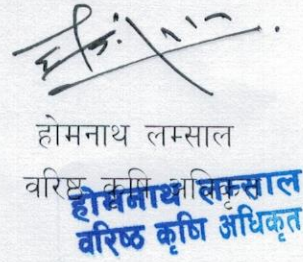 होमनाथ लम्साल
वरिष्ठ कृषि अधिकृत
होमनाथ लम्साल
वरिष्ठ कृषि अधिकृत